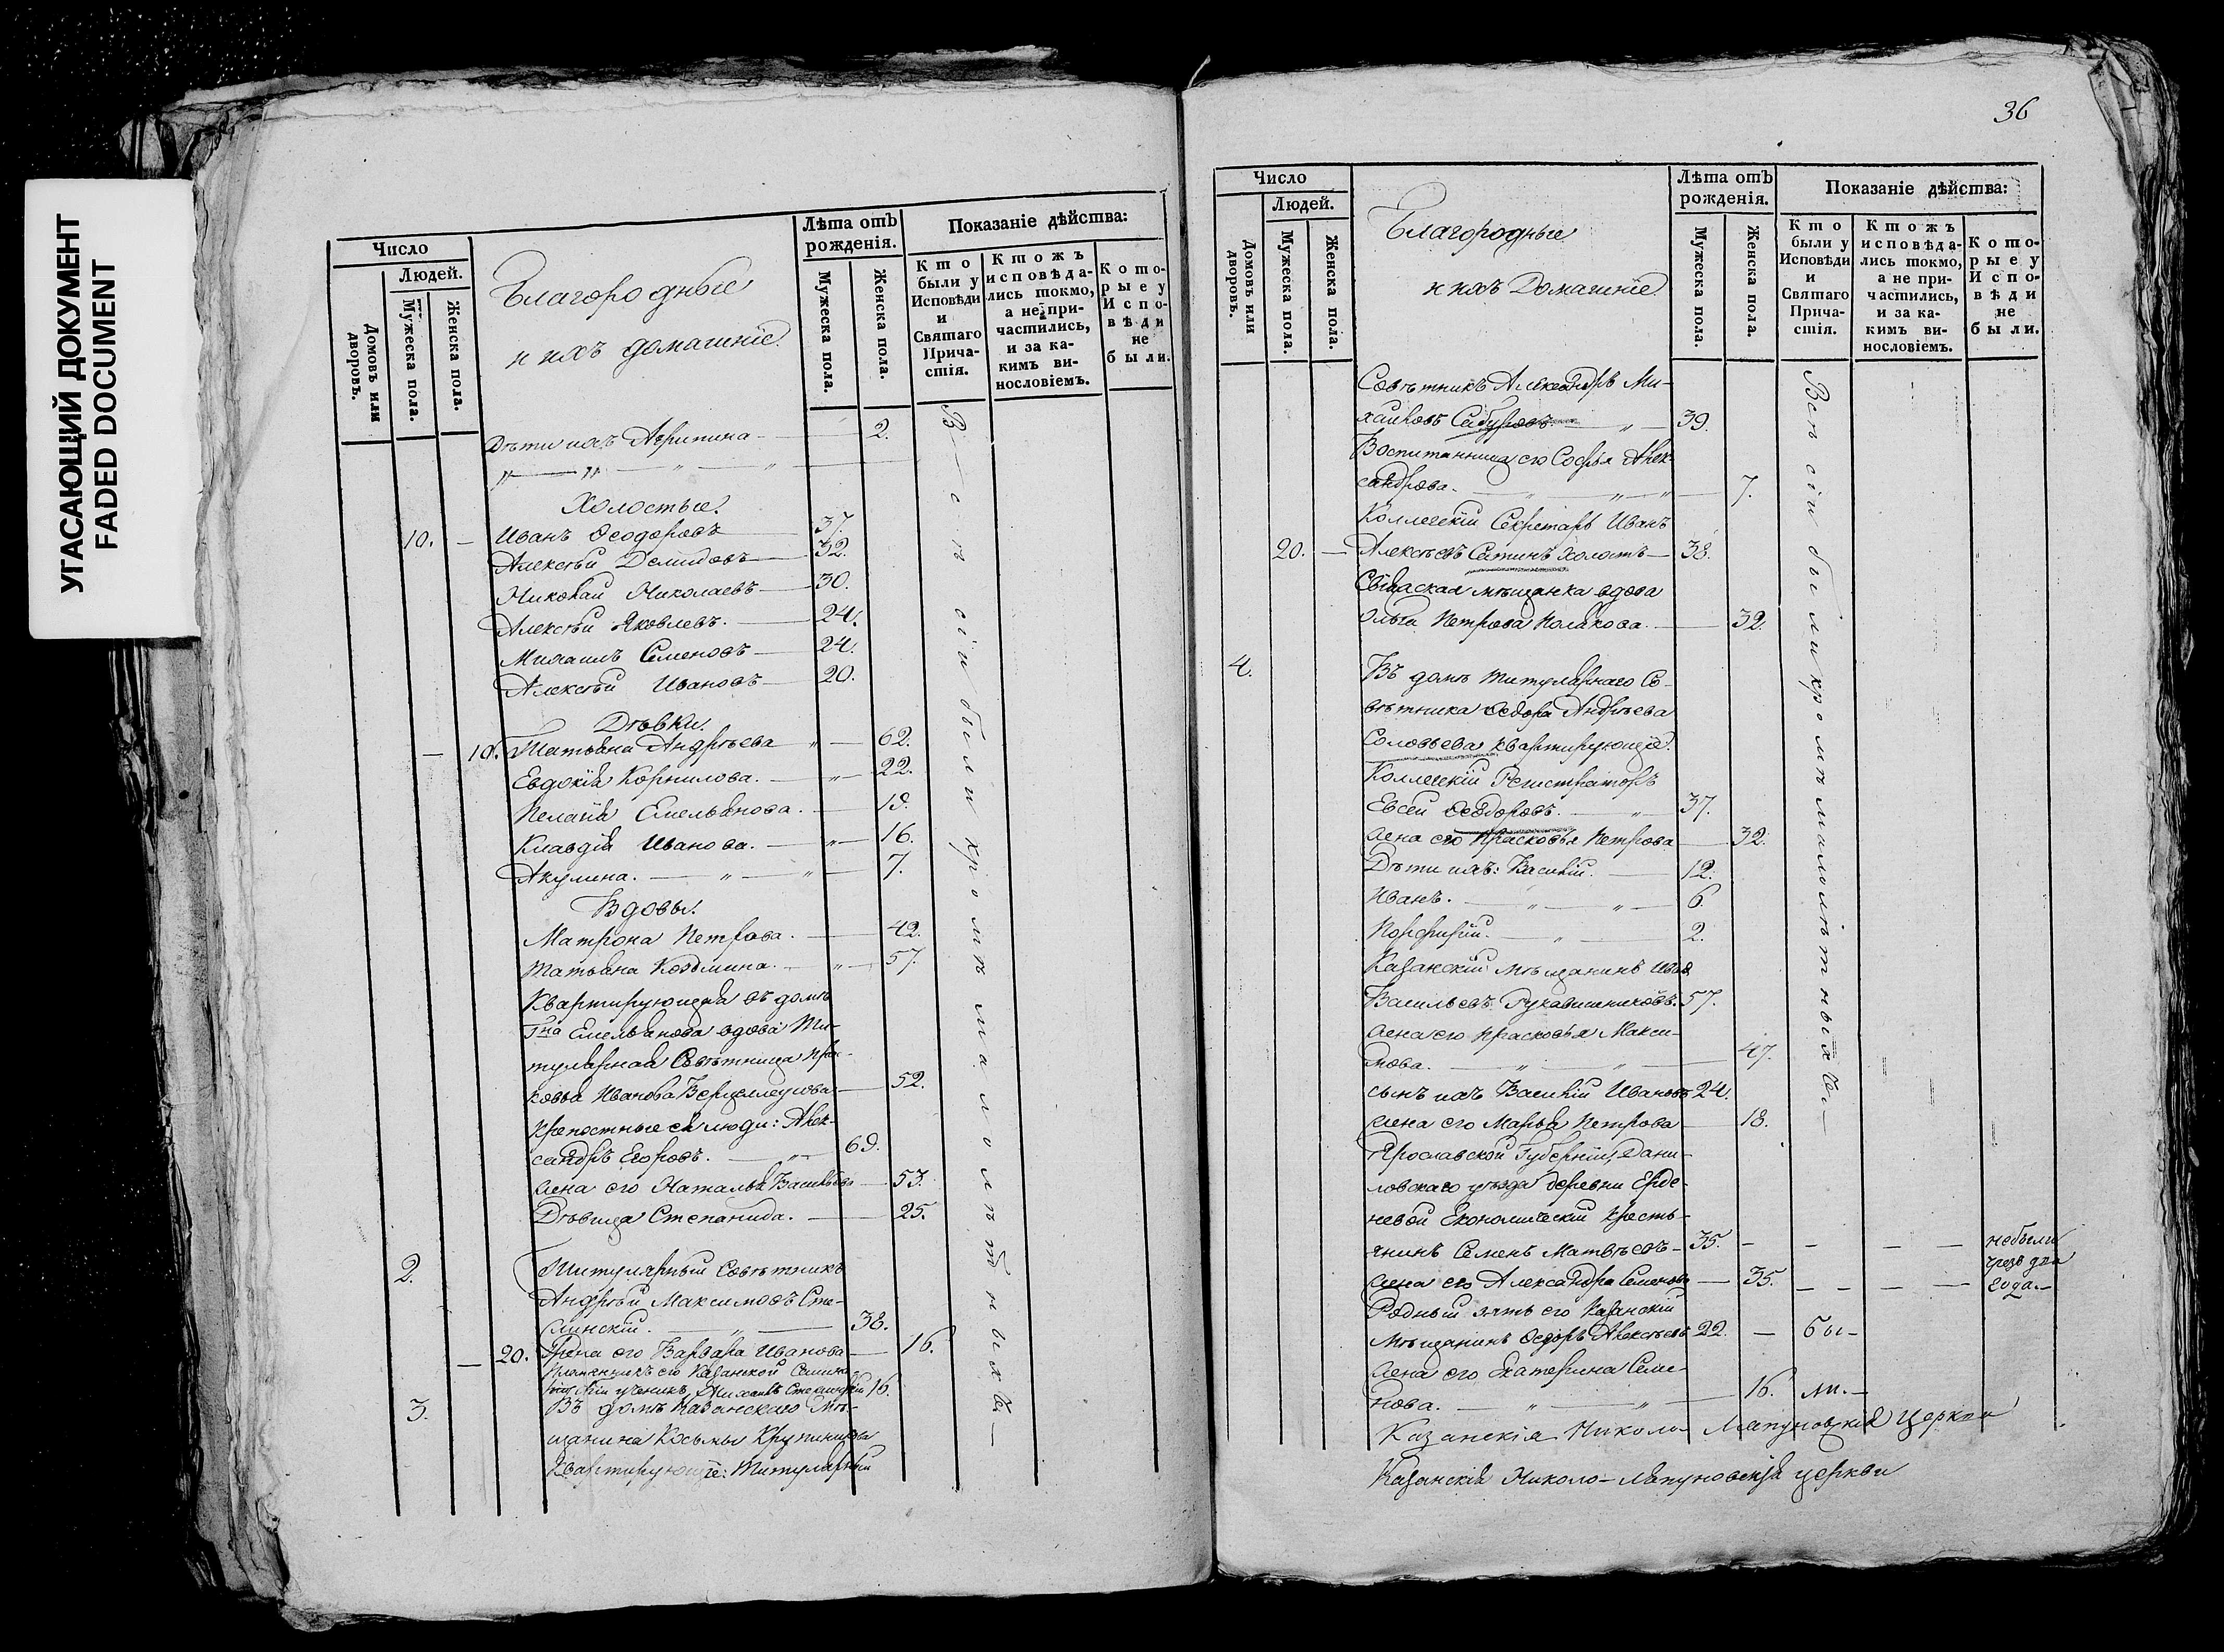 УГАСАЮЩИЙ ДОКУМЕНТ
FADED DOCUMENT
Число
Людей.
Домовъ или дворовъ.
Мужеска пола.
Женска пола.
Благородные
и ихъ домашніе.
Лѣта отъ рожденія.
Мужеска пола.
Женска пола.
Показаніе дѣйства:
Кто были у Исповѣди и Святаго Причастія.
Ктожъ исповѣдались токмо, а не причастились, и за какимъ винословіемъ.
Которые у Исповѣди не были.
Дѣти ихъ Агрипина 2.
Холостые.
10. Иванъ Ѳеодоровъ 37.
Алексѣй Демидовъ 32.
Николай Николаевъ 30.
Алексѣй Яковлевъ. 24.
Михаилъ Семеновъ 24.
Алексѣй Ивановъ 20.
Дѣвки.
10. Татьяна Андрѣева 62.
Евдокія Корнилова. 22.
Пелагія Емельянова. 19.
Клавдія Иванова. 16.
Акулина. 7.
Вдовы.
Матрона Петрова. 42.
Татьяна Козмина. 57.
Квартирующая въ домѣ
Гна Емельянова вдова Ти-
тулярная Совѣтница Прас-
ковья Иванова 52.
Крепостные ея люди: Алек-
сандръ Егоровъ. 69.
Жена его Наталья Васильева 53.
Дѣвица Степанида. 25.
2. Титулярный Совѣтникъ
Андрей Максимовъ Сте-
линскій. 38.
20. Жена его Варвара Иванова 16.
Племянникъ его Казанской
ученикъ 16.
3. Въ домѣ Казанскаго Мѣ-
щанина Косьмы Крупникова
Квартирующіе: Титулярный
Всѣ сіи были кромѣ малолѣтныхъ.
36
Число
Людей.
Домовъ или дворовъ.
Мужеска пола.
Женска пола.
Благородные
и ихъ Домашніе.
Лѣта отъ рожденія.
Мужеска пола.
Женска пола.
Показаніе дѣйства:
Кто были у Исповѣди и Святаго Причастія.
Ктожъ исповѣдались токмо, а не причастились, и за какимъ винословіемъ.
Которые у Исповѣди не были.
Совѣтникъ Александръ Ми-
хаиловъ Сабуровъ 39.
Воспитанница его Софья Алек-
сандрова. 7.
Коллегскій Секретарь Иванъ
20. Алексѣевъ Сатинъ холостъ 38.
мѣщанка вдова
Ольга Петрова Полякова. 32.
4. Въ домѣ Титулярнаго Со-
вѣтника Ѳедора Андрѣева
Соловьева квартирующіе.
Коллегскій Регистраторъ
Евсей Ѳеодоровъ. 37.
Жена его Прасковья Петрова 32.
Дѣти ихъ: Василій. 12.
Иванъ. 6.
Порфирій. 2.
Казанскій мѣщанинъ Иванъ
Васильевъ Рукавишниковъ. 57.
Жена его Прасковья Макси-
мова. 47.
Сынъ ихъ Василій Ивановъ 24.
Жена его Марья Петрова 18.
Ярославской Губерніи, Дани-
ловскаго уѣзда деревни Ерде-
невой Економическій кресть-
янинъ Семенъ Матвѣевъ 35. небыли
чрезъ два
Жена его Александра Семенова 35. года.
Родный зять его Казанскій
Мѣщанинъ Ѳедоръ Алексѣевъ 22. бы-
Жена его Екатерина Семе-
нова. 16. ли.
Всѣ сіи были кромѣ малолѣтныхъ.
Казанскія Николо Ляпуновскія Церкви
Казанскія Николо-Ляпуновскія церкви